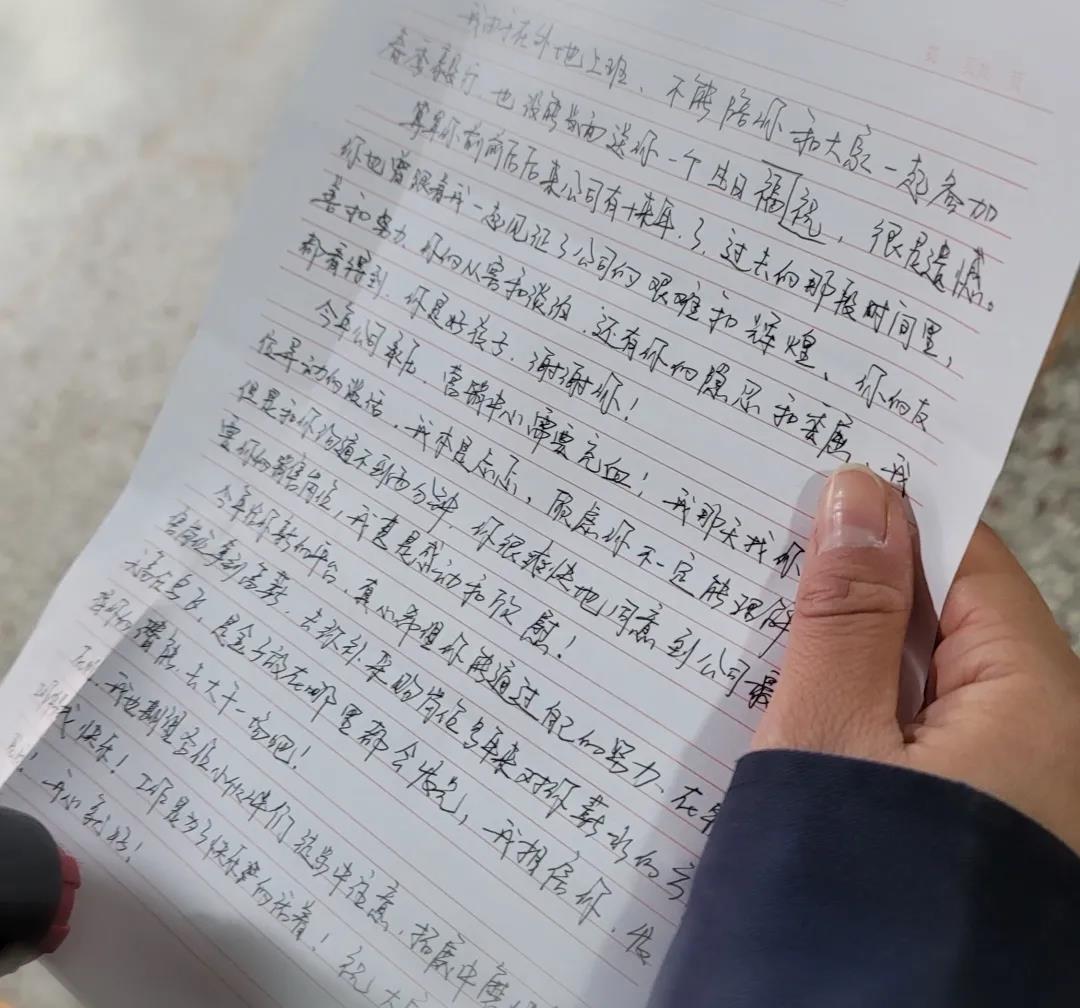 我由于在外地上班、不能陪你和大家一起参加
春季毅行 也没能当面送你一个生日福祝，很是遗憾。
算算你前前后后来公司有十来年了，过去的那段时间里，
你也曾跟着我一起见证了公司的艰难和辉煌、你的友
善和努力、你的从容和淡泊，还有你的隐忍和委屈，我
都看得到。你是好孩子，谢谢你！
今年公司 营销中心需要充血！我那天找你
位 动的谈话，我本是忐忑，顾虑你不一定能理解
但是和你沟通不到两分钟，你很爽快地同意到公司最
需 你的销售岗位，我真是感动和欣慰！
今年给你新的平台，真心希望你能通过自己的努力、在
拿到高薪，去 采购岗位多年来对你薪水的
是金子放在哪里都会发光，我相信你，发
挥你的潜能、去大干一场吧！
我也期望各位小伙伴们 注意，拓展中
快乐！工作是为了快乐 的活着！祝大
！